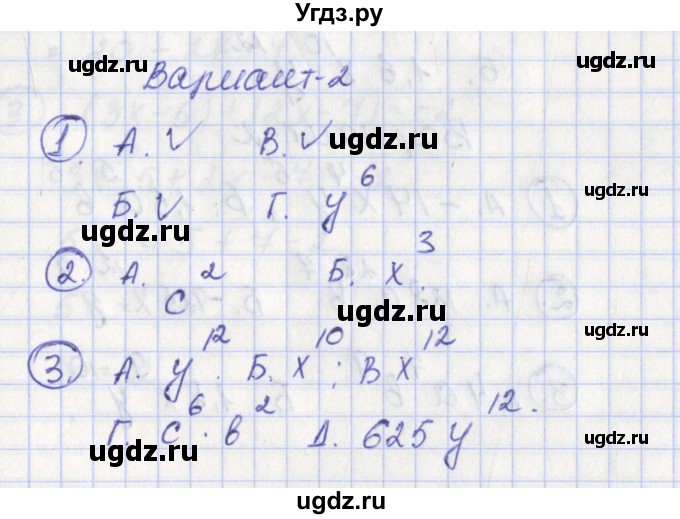 Угдз.ру
ugdz.ru ugdz.ru ugdz.ru
Вариант-2
1. А. V В. V ugdz.ru
Б. V Г. y⁶
ugdz.ru ugdz.ru
2. А. c² Б. x³.
ugdz.ru
3. А. y¹². Б. x¹⁰; В x¹²
ugdz.ru ugdz.ru
Г. c⁶·в² Д. 625y¹².
ugdz.ru ugdz.ru
ugdz.ru
ugdz.ru